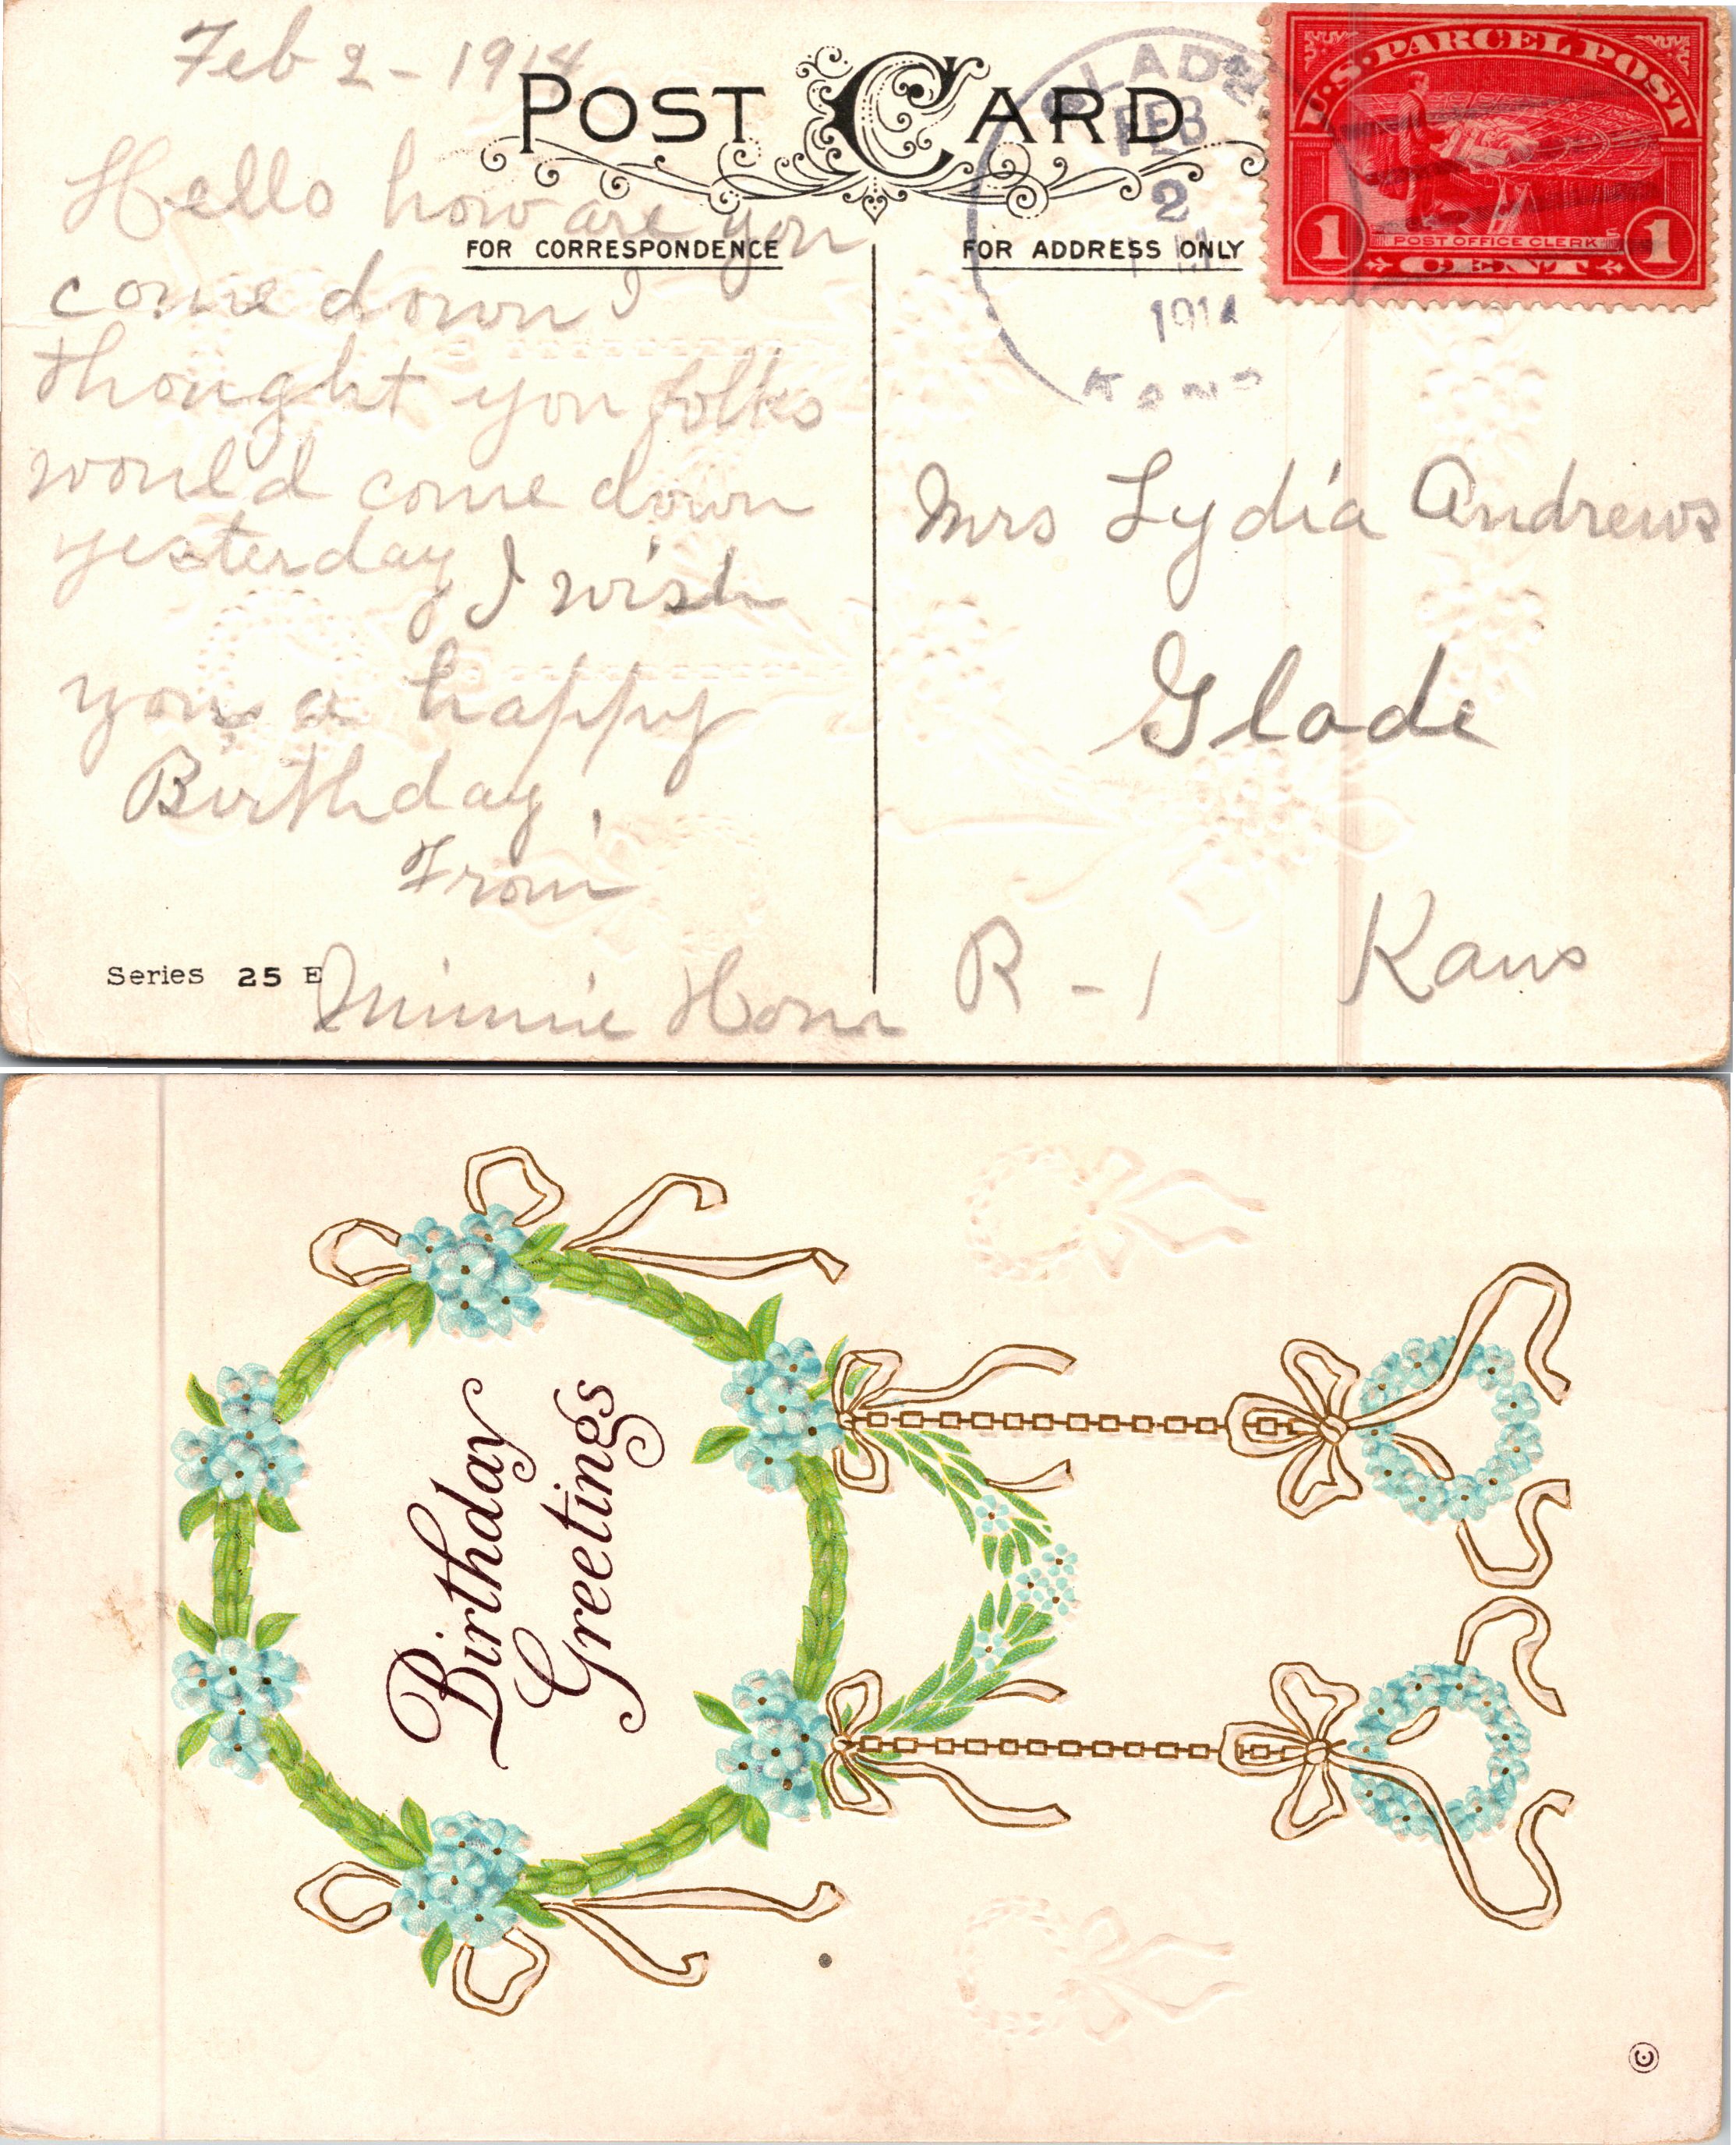 Feb 2 - 1914
POST CARD
Hello how are you
FOR CORRESPONDENCE
come down I
thought you folks
would come down
yesterday I wish
you a happy
Birthday.
From
Minnie Horn
Series 25 E
FOR ADDRESS ONLY
GLADE
FEB
2
1914
KANS
U.S. PARCEL POST
1 POST OFFICE CLERK 1
CENT
Mrs Lydia Andrews
Glade
R - 1 Kans
Birthday
Greetings